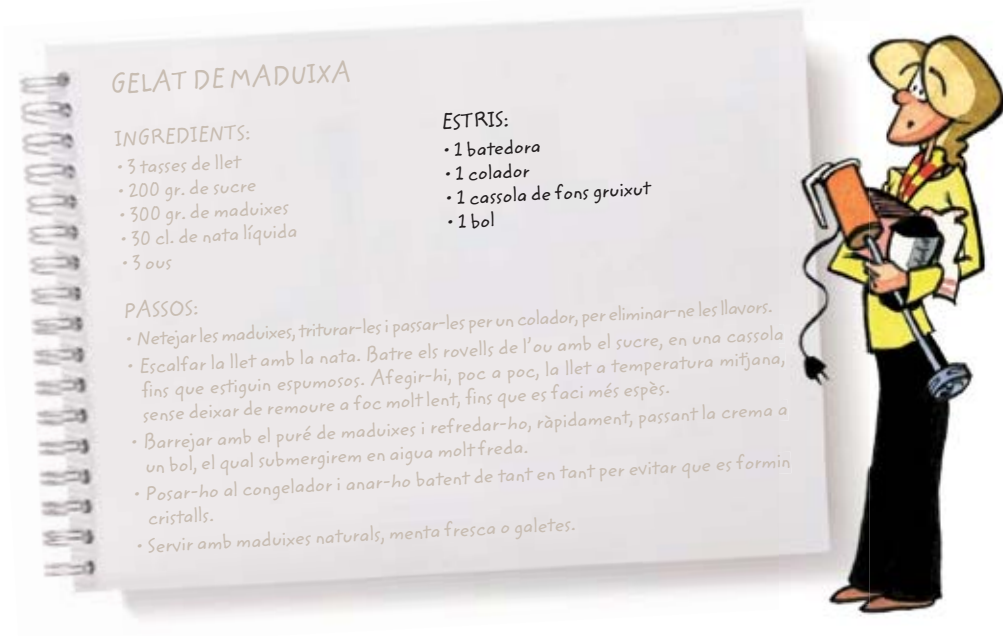 GELAT DE MADUIXA
INGREDIENTS:
• 3 tasses de llet
• 200 gr. de sucre
• 300 gr. de maduixes
• 30 cl. de nata líquida
• 3 ous
ESTRIS:
• 1 batedora
• 1 colador
• 1 cassola de fons gruixut
• 1 bol
PASSOS:
• Netejar les maduixes, triturar-les i passar-les per un colador, per eliminar-ne les llavors.
• Escalfar la llet amb la nata. Batre els rovells de l'ou amb el sucre, en una cassola
fins que estiguin espumosos. Afegir-hi, poc a poc, la llet a temperatura mitjana,
sense deixar de remoure a foc molt lent, fins que es faci més espès.
• Barrejar amb el puré de maduixes i refredar-ho, ràpidament, passant la crema a
un bol, el qual submergirem en aigua molt freda.
• Posar-ho al congelador i anar-ho batent de tant en tant per evitar que es formin
cristalls.
• Servir amb maduixes naturals, menta fresca o galetes.